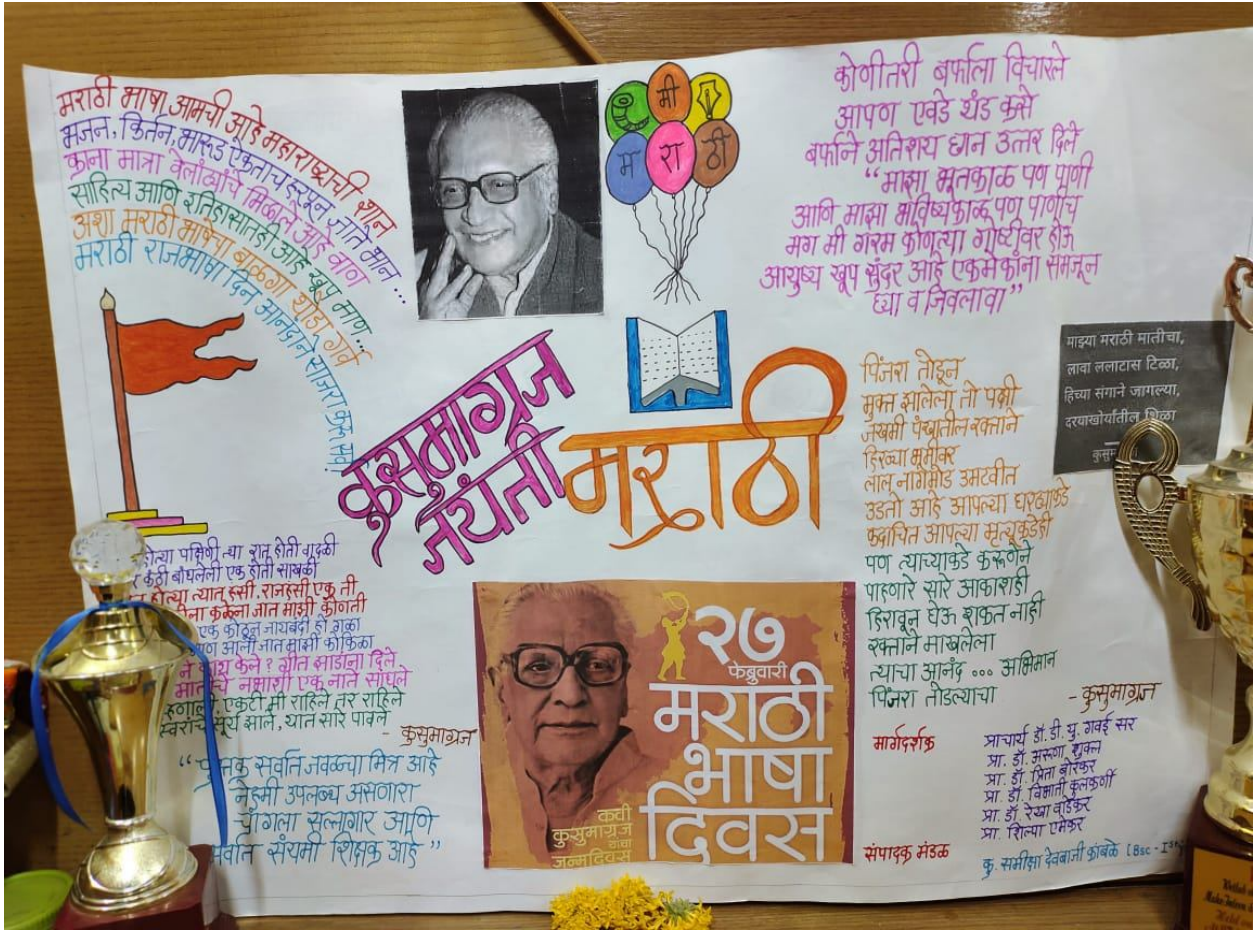 मराठी भाषा आमची आहे महाराष्ट्राची शान
भजन, किर्तन, भारूड ऐकताच हरपून जाते भान ...
काना मात्रा वेलांट्यांचे मिळाले आहे वाण
साहित्य आणि इतिहासातही आहे खूप माण...
अशा मराठी भाषेचा बाळगा थोडा गर्व
मराठी राजभाषा दिन आनंदाने साजरा करू सर्व
मी
म रा ठी
कोणीतरी बर्फाला विचारले
आपण एवडे थंड कसे
बर्फाने अतिशय छान उत्तर दिले
“माझा भूतकाळ पण पाणी
आणि माझा भविष्यकाळ पण पाणीच
मग मी गरम कोणत्या गोष्टीवर होऊ
आयुष्य खूप सुंदर आहे एकमेकांना समजून
घ्या व जिवलावा”
कुसुमाग्रज
जयंती
मराठी
माझ्या मराठी मातीचा,
लावा ललाटास टिळा,
हिच्या संगाने जागल्या,
दऱ्याखोऱ्यांतील शिळा
पिंजरा तोडून
मुक्त झालेला तो पक्षी
जखमी पंखातील रक्ताने
हिरव्या भूमीवर
लाल नागमोड उमटवीत
उडतो आहे आपल्या घरट्याकडे
कदाचित आपल्या मृत्यूकडेही
पण त्याच्याकडे करूणेने
पाहणारे सारे आकाशही
हिरावून घेऊ शकत नाही
रक्ताने माखलेला
त्याचा आनंद ... अभिमान
पिंजरा तोडल्याचा
- कुसुमाग्रज
होत्या पक्षिणी त्या रात्र होती वादळी
कंठी बांधलेली एक होती साखळी
होत्या त्यात हंसी. राजहंसी एक ती
कळेना जात माझी कोणती
एक कोठून जायबंदी ही
आली जात माझी कोकिळा
केले ? गीत झाडांना दिले
मातीचे नभाशी एक नाते सांधले
एकटी मी राहिले तर राहिले
स्वरांचे सूर्य झाले, यात सारे पावले
- कुसुमाग्रज
सर्वात जवळचा मित्र आहे
नेहमी उपलब्ध असणारा
चांगला सल्लागार आणि
सर्वात संयमी शिक्षक आहे”
२७
फेब्रुवारी
मराठी
भाषा
दिवस
कवी
कुसुमाग्रज
यांचा
जन्मदिवस
मार्गदर्शक
प्राचार्य डॉ. डी. यु. गवई सर
प्रा. डॉ. शुक्ला
प्रा. डॉ. प्रिता बोरकर
प्रा. डॉ. विभाती कुलकर्णी
प्रा. डॉ. रेखा वाडेकर
प्रा. शिल्पा एमेकर
संपादक मंडळ
कु. समीक्षा देवबाजी कांबळे (Bsc - I